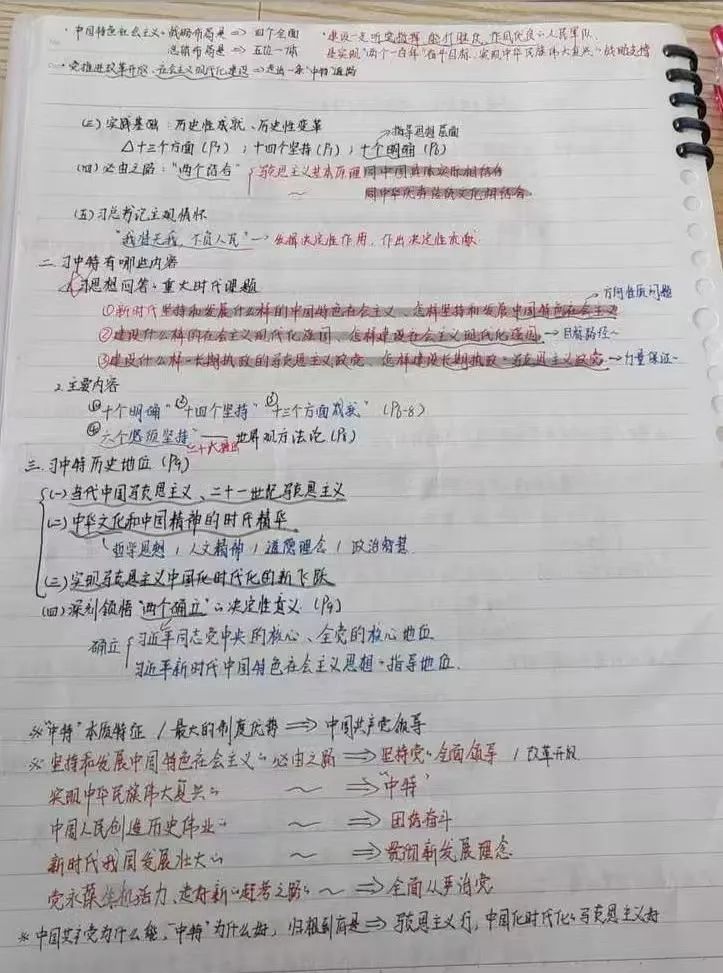 · 中国特色社会主义·战略布局是 ⇒ 四个全面
总体布局是 ⇒ 五位一体
*建设一支听党指挥、能打胜仗、作风优良的人民军队,
是实现"两个一百年"奋斗目标、实现中华民族伟大复兴的战略支撑
· 党推进改革开放、社会主义现代化建设 ⇒ 走出一条"中特"道路
(三) 实践基础:历史性成就、历史性变革
指导思想层面
△十三个方面(P1);十四个坚持(P1);十个明确(P8)
(四) 必由之路:"两个结合" 马克思主义基本原理同中国具体实际相结合
~ 同中华优秀传统文化相结合
(五) 习总书记主观情怀
"我将无我,不负人民" → 发挥决定性作用,作出决定性贡献
二. 习中特有哪些内容
1.习思想回答·重大时代课题
①新时代坚持和发展什么样的中国特色社会主义、怎样坚持和发展中国特色社会主义 → 方向性质问题
②建设什么样的社会主义现代化强国、怎样建设社会主义现代化强国 → 目标路径~
③建设什么样·长期执政的马克思主义政党、怎样建设长期执政·马克思主义政党 → 力量保证~
2. 主要内容
①"十个明确" ②"十四个坚持" ③"十三个方面成就" (P6-8)
④"六个必须坚持" —— 世界观方法论(P8)
二十大提出
三. 习中特历史地位 (P9)
(一) 当代中国马克思主义、二十一世纪马克思主义
(二) 中华文化和中国精神的时代精华
哲学思想 / 人文精神 / 道德理念 / 政治智慧
(三) 实现马克思主义中国化时代化的新飞跃
(四) 深刻领悟"两个确立"的决定性意义 (P9)
确立 习近平同志党中央的核心、全党的核心地位
习近平新时代中国特色社会主义思想·指导地位.
※ "中特"本质特征 / 最大的制度优势 ⇒ 中国共产党领导
※ 坚持和发展中国特色社会主义的必由之路 ⇒ 坚持党·全面领导 / 改革开放
实现中华民族伟大复兴的 ~ ⇒ "中特"
中国人民创造历史伟业的 ~ ⇒ 团结奋斗
新时代我国发展壮大的 ~ ⇒ 贯彻新发展理念
党永葆生机活力、走好新的赶考之路的 ~ ⇒ 全面从严治党
※ 中国共产党为什么能,"中特"为什么好,归根到底是 ⇒ 马克思主义行,中国化时代化的马克思主义好